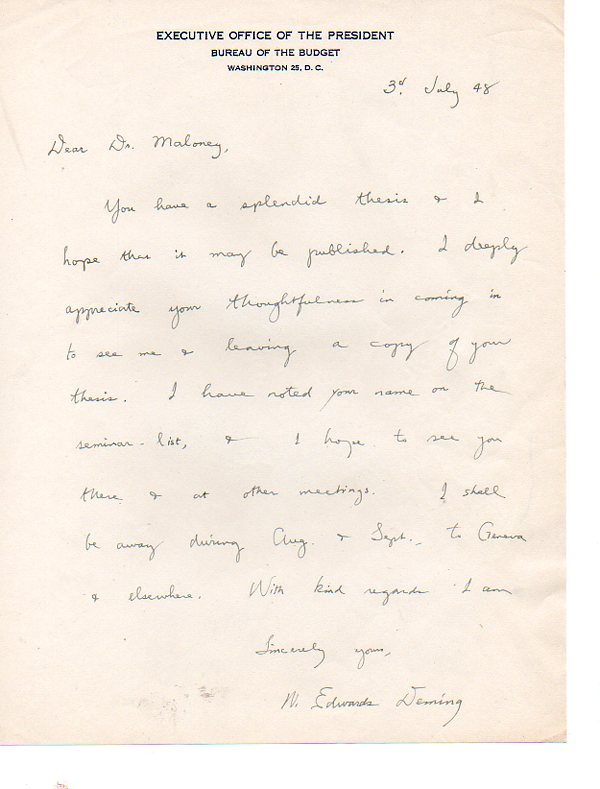 EXECUTIVE OFFICE OF THE PRESIDENT
BUREAU OF THE BUDGET
WASHINGTON 25, D. C.
3d. July 48
Dear Dr. Maloney,
You have a splendid thesis & I
hope that it may be published. I deeply
appreciate your thoughtfulness in coming in
to see me & leaving a copy of your
thesis. I have noted your name on the
seminar-list, & I hope to see you
there & at other meetings. I shall
be away during Aug. & Sept., to Geneva
& elsewhere. With kind regards I am
Sincerely yours,
W. Edwards Deming